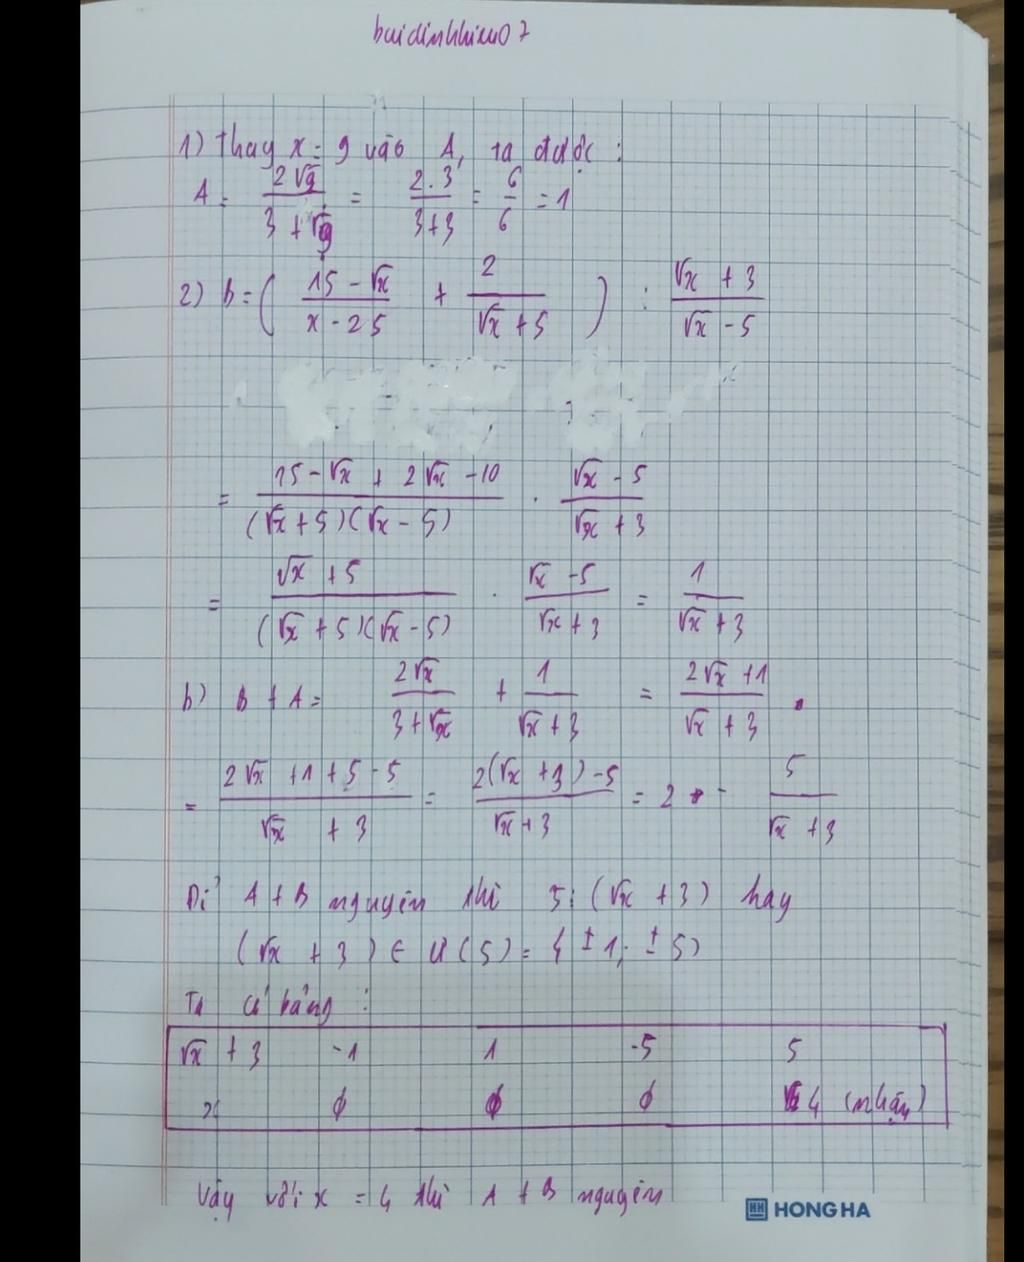 buidinhhieu07
1) Thay x = 9 vào A, ta được :
A = 2√9 / (3 + √9) = 2.3 / (3+3) = 6/6 = 1
2) b = ( (15 - √x) / (x - 25) + 2 / (√x + 5) ) : (√x + 3) / (√x - 5)
= (15 - √x + 2√x - 10) / ((√x + 5)(√x - 5)) . (√x - 5) / (√x + 3)
= (√x + 5) / ((√x + 5)(√x - 5)) . (√x - 5) / (√x + 3) = 1 / (√x + 3)
b) B + A = 2√x / (3 + √x) + 1 / (√x + 3) = (2√x + 1) / (√x + 3) .
= (2√x + 1 + 5 - 5) / (√x + 3) = (2(√x + 3) - 5) / (√x + 3) = 2 - 5 / (√x + 3)
Để A + B nguyên thì 5 ⋮ (√x + 3) hay
(√x + 3) ∈ Ư(5) = { ± 1; ± 5)
Ta có bảng :
√x + 3 -1 1 -5 5
x ϕ ϕ ϕ 4 (nhận)
Vậy với x = 4 thì A + B nguyên
HH HONG HA